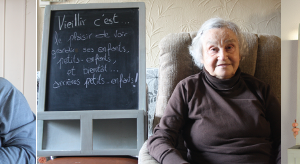 Vieillir c'est...
le plaisir de voir
grandir ses enfants,
petits-enfants,
et bientôt...
arrières petits-enfants!